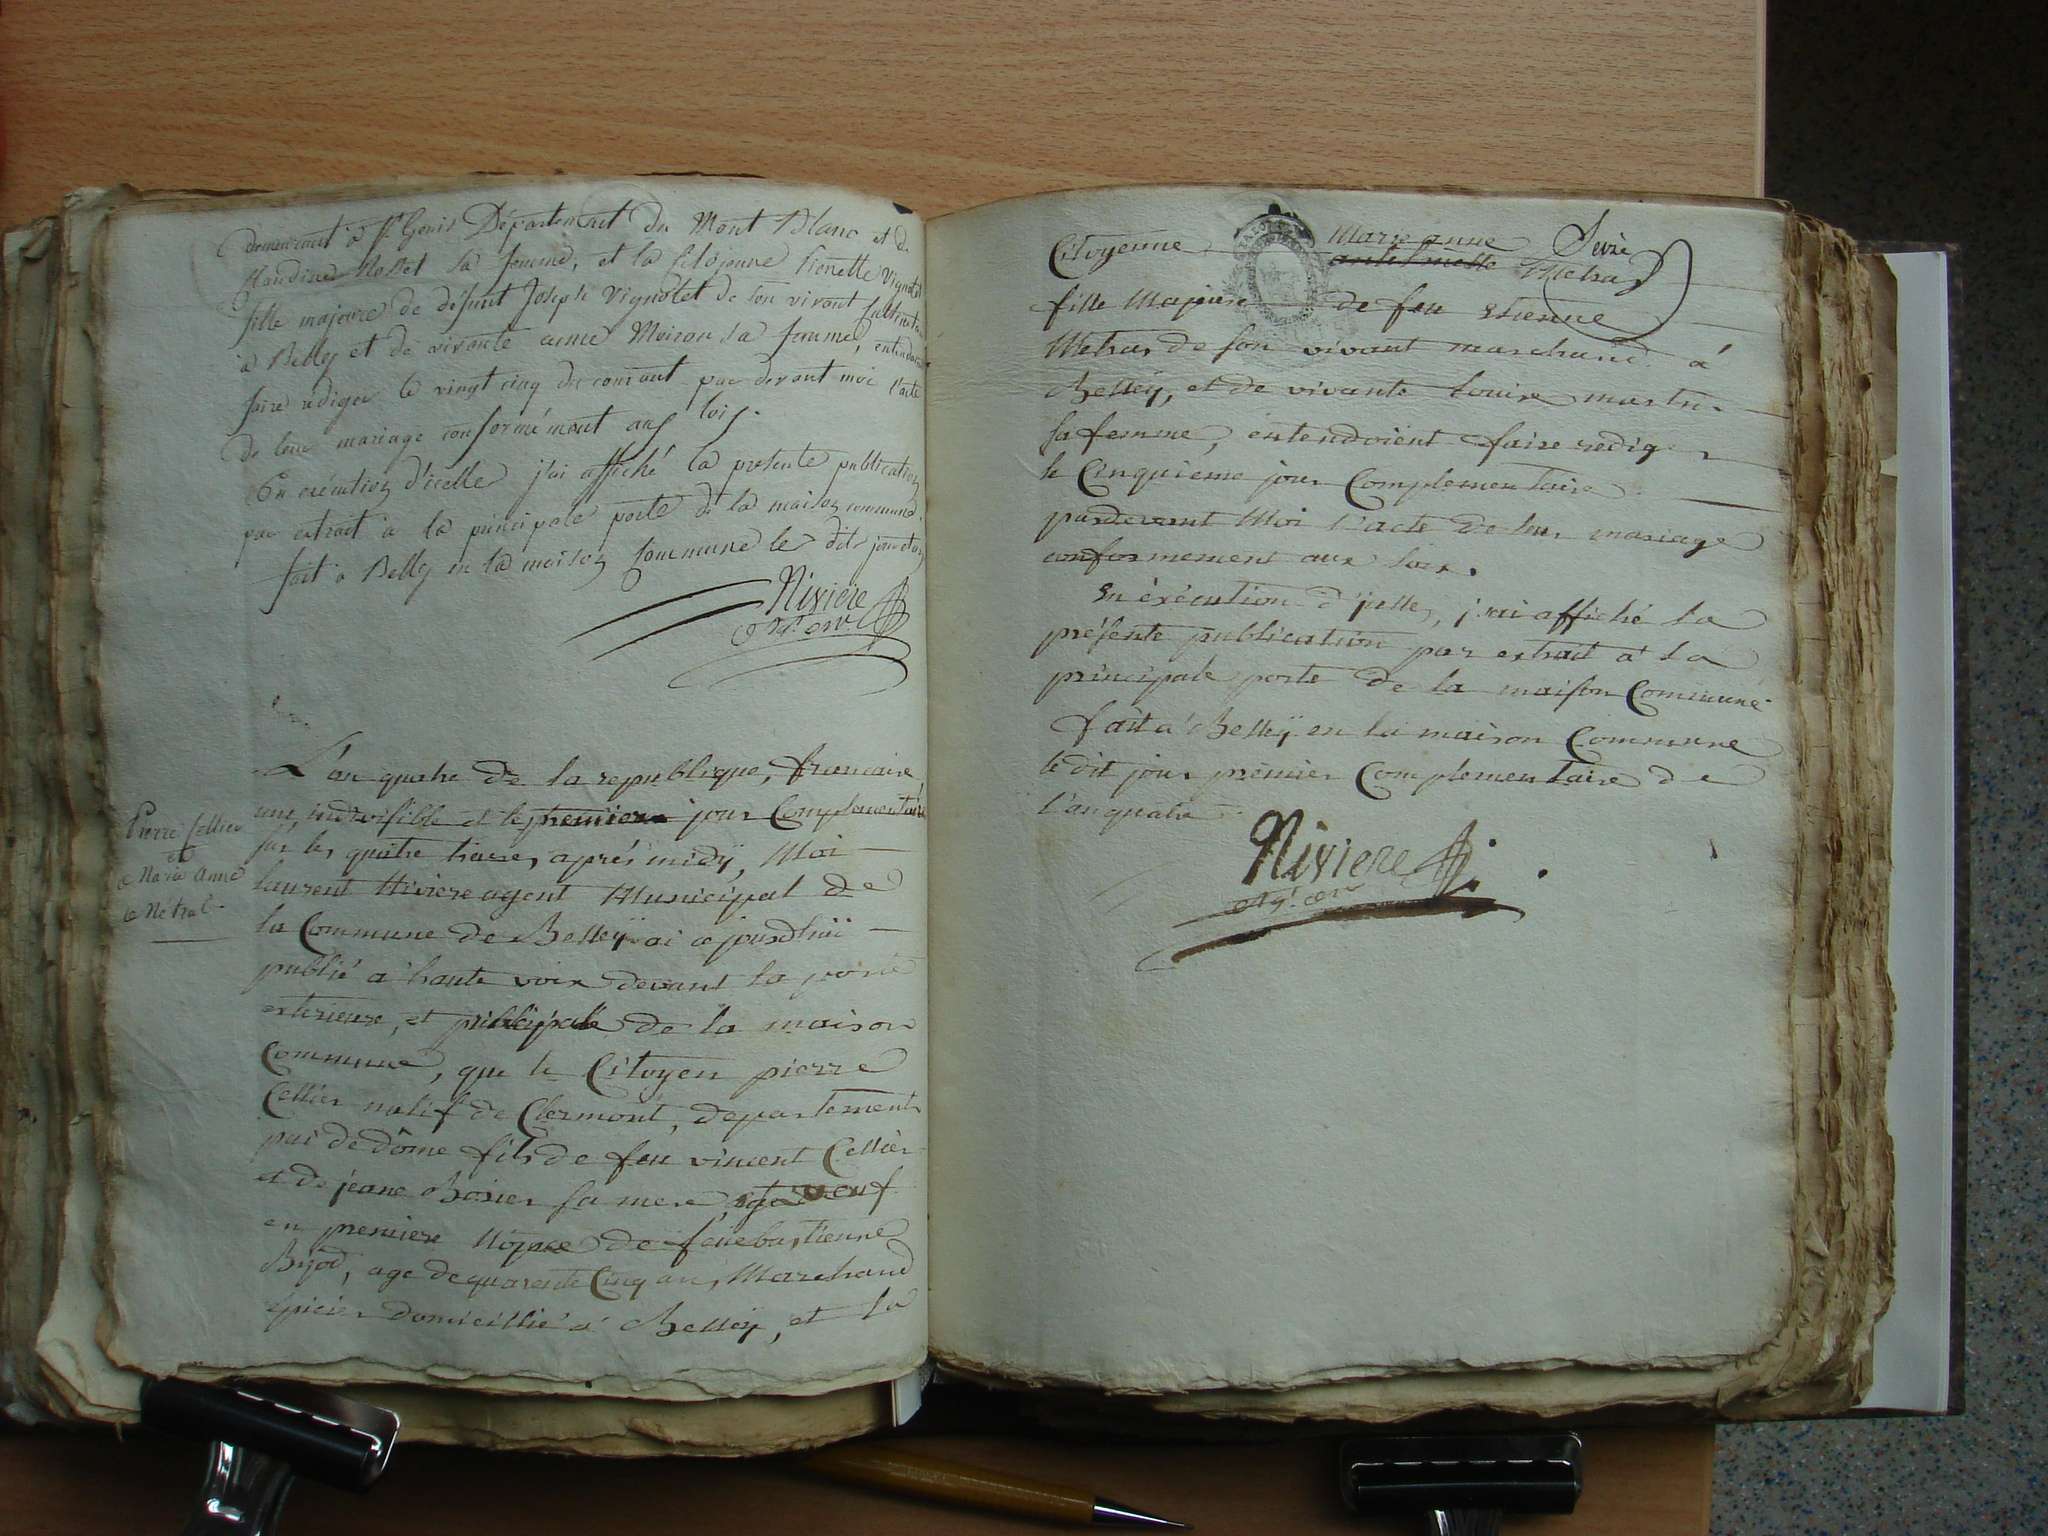 demeurant à St Genis Département du Mont Blanc et de
Claudine Rosset sa femme, et la Citoÿenne Pierrette Vignolet
fille majeure de défunt Joseph Vignolet de son vivant
à Belley et de vivante anne Moiron sa femme, entendoient
faire rediger le vingt cinq du courant par devant moi l'acte
de leur mariage conformément aux loix.
En exécution d'icelle j'ai affiché la présente publication
par extrait à la principale porte de la maison commune
fait à Belley en la maison Commune le dit jour et an
Rivière
L'an quatre de la republique, francaise
une indivisible et le premier jour Complementaire
sur les quatre heures après midÿ, Moi
laurent Riviere agent Municipal de
la Commune de Belleÿ ai ce jourdhui
publié a haute voix devant la porte
exterieure, et principale de la maison
Commune, que le Citoyen pierre
Cellier natif de Clermont, departement
pui de dôme fils de feu vincent Cellier
et de jeane Rosier sa mere, veuf
en premiere Nopce de feüe bastienne
Bijod, age de quarente Cinq ans, Marchand
Epicier domicillié a Belleÿ, et la
Pierre Cellier
et
Marie Anne
Métral
Citoyenne Marie anne Sevie
Metras
fille Majeure de feu Etienne
Metras de son vivant marchand à
Belleÿ, et de vivante Louise martin
sa femme, entendoïent faire redige
le Cinquieme jour Complementaire
pardevant Moi l'acte de leur mariage
conformement aux loix.
En éxécution d'jcelles, j'ai affiché la
présente publication par extrait a la
principale porte de la maison Commune
fait a Belleÿ en la maison Commune
le dit jour premier Complementaire de
l'an quatre
Rivière